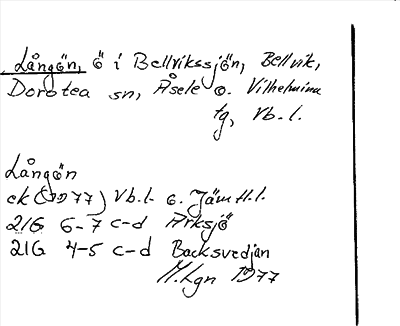 Långön, ö i Bellvikssjön, Bellvik,
Dorotea sn, Åsele o. Vilhelmina
tg, Vb.l.
Långön
ek (1977) Vb.l. o. Jämtl.l.
21G 6-7 c-d Arksjö
21G 4-5 c-d Backsvedjan
M.Lgn 1977